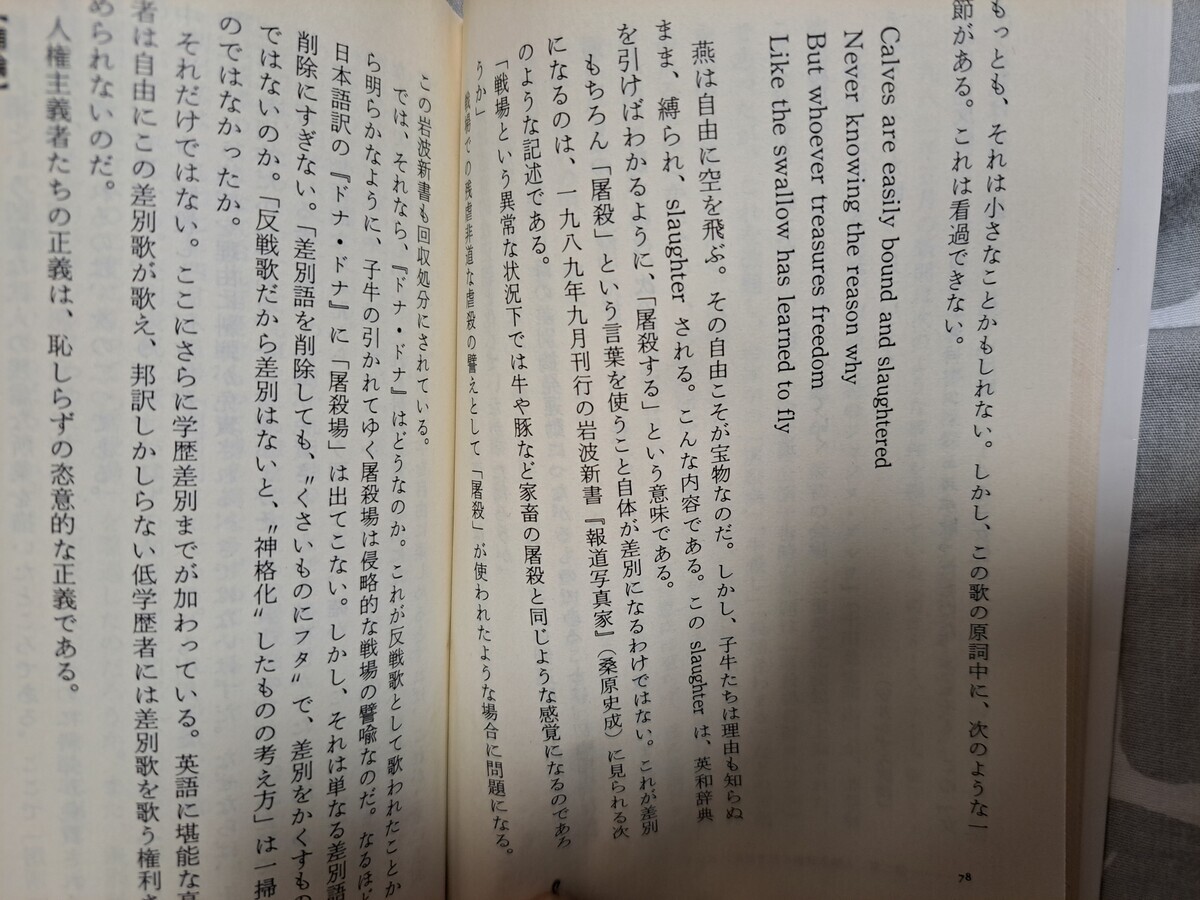 もっとも、それは小さなことかもしれない。しかし、この歌の原詞中に、次のような一
節がある。これは看過できない。
Calves are easily bound and slaughtered
Never knowing the reason why
But whoever treasures freedom
Like the swallow has learned to fly
燕は自由に空を飛ぶ。その自由こそが宝物なのだ。しかし、子牛たちは理由も知らぬ
まま、縛られ、slaughter される。こんな内容である。この slaughter は、英和辞典
を引けばわかるように、「屠殺する」という意味である。
もちろん「屠殺」という言葉を使うこと自体が差別になるわけではない。これが差別
になるのは、一九八九年九月刊行の岩波新書『報道写真家』（桑原史成）に見られる次
のような記述である。
「戦場という異常な状況下では牛や豚など家畜の屠殺と同じような感覚になるのであろ
うか」
戦場での残虐非道な虐殺の譬えとして「屠殺」が使われたような場合に問題になる。
78
この岩波新書も回収処分にされている。
では、それなら、『ドナ・ドナ』はどうなのか。これが反戦歌として歌われたことか
ら明らかなように、子牛の引かれてゆく屠殺場は侵略的な戦場の譬喩なのだ。なるほど
日本語訳の『ドナ・ドナ』に「屠殺場」は出てこない。しかし、それは単なる差別語
削除にすぎない。「差別語を削除しても、〝くさいものにフタ〟で、差別をかくすもの
ではないのか。「反戦歌だから差別はないと、〝神格化〟したものの考え方」は一掃
のではなかったか。
それだけではない。ここにさらに学歴差別までが加わっている。英語に堪能な高
者は自由にこの差別歌が歌え、邦訳しかしらない低学歴者には差別歌を歌う権利さ
められないのだ。
人権主義者たちの正義は、恥しらずの恣意的な正義である。